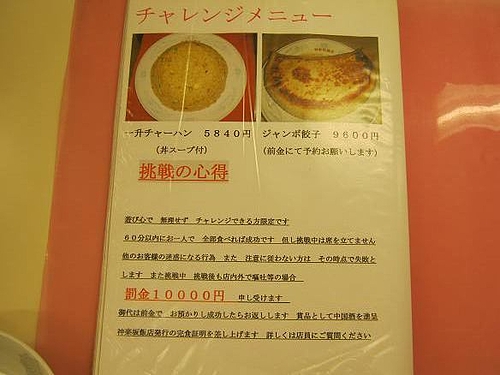 チャレンジメニュー
一升チャーハン 5840円 ジャンボ餃子 9600円
(丼スープ付) (前金にて予約お願いします)
挑戦の心得
遊び心で 無理せず チャレンジできる方限定です
60分以内にお一人で 全部食べれば成功です 但し挑戦中は席を立てません
他のお客様の迷惑になる行為 また 注意に従わない方は その時点で失敗と
します また挑戦中 挑戦後も店内外で嘔吐等の場合
罰金10000円 申し受けます
御代は前金で お預かりし成功したらお返しします 賞品として中国酒を進呈
神楽坂飯店発行の完食証明を差し上げます 詳しくは店員にご質問ください